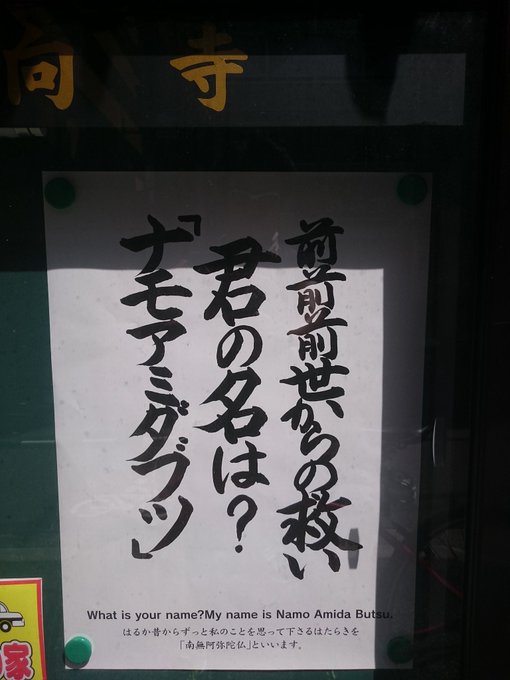 向寺
前前前世からの救い
君の名は？
「ナモアミダブツ」
What is your name?My name is Namo Amida Butsu.
はるか昔からずっと私のことを思って下さるはたらきを
「南無阿弥陀仏」といいます。
家